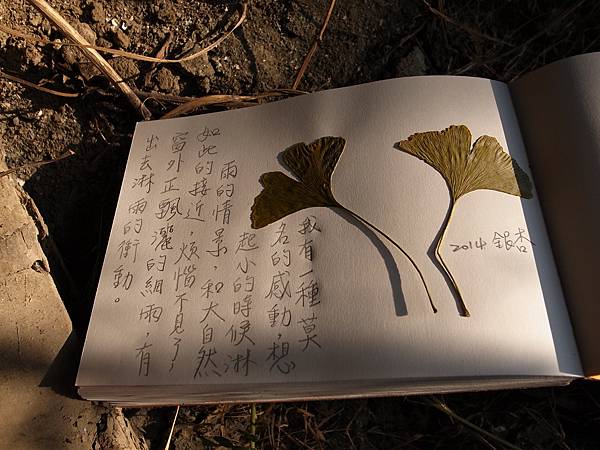 2014 銀杏
我有一種莫
名的感動,想
起小的時候淋
雨的情景,和大自然
如此的接近,煩惱不見了,
窗外正飄灑的細雨,有
出去淋雨的衝動。